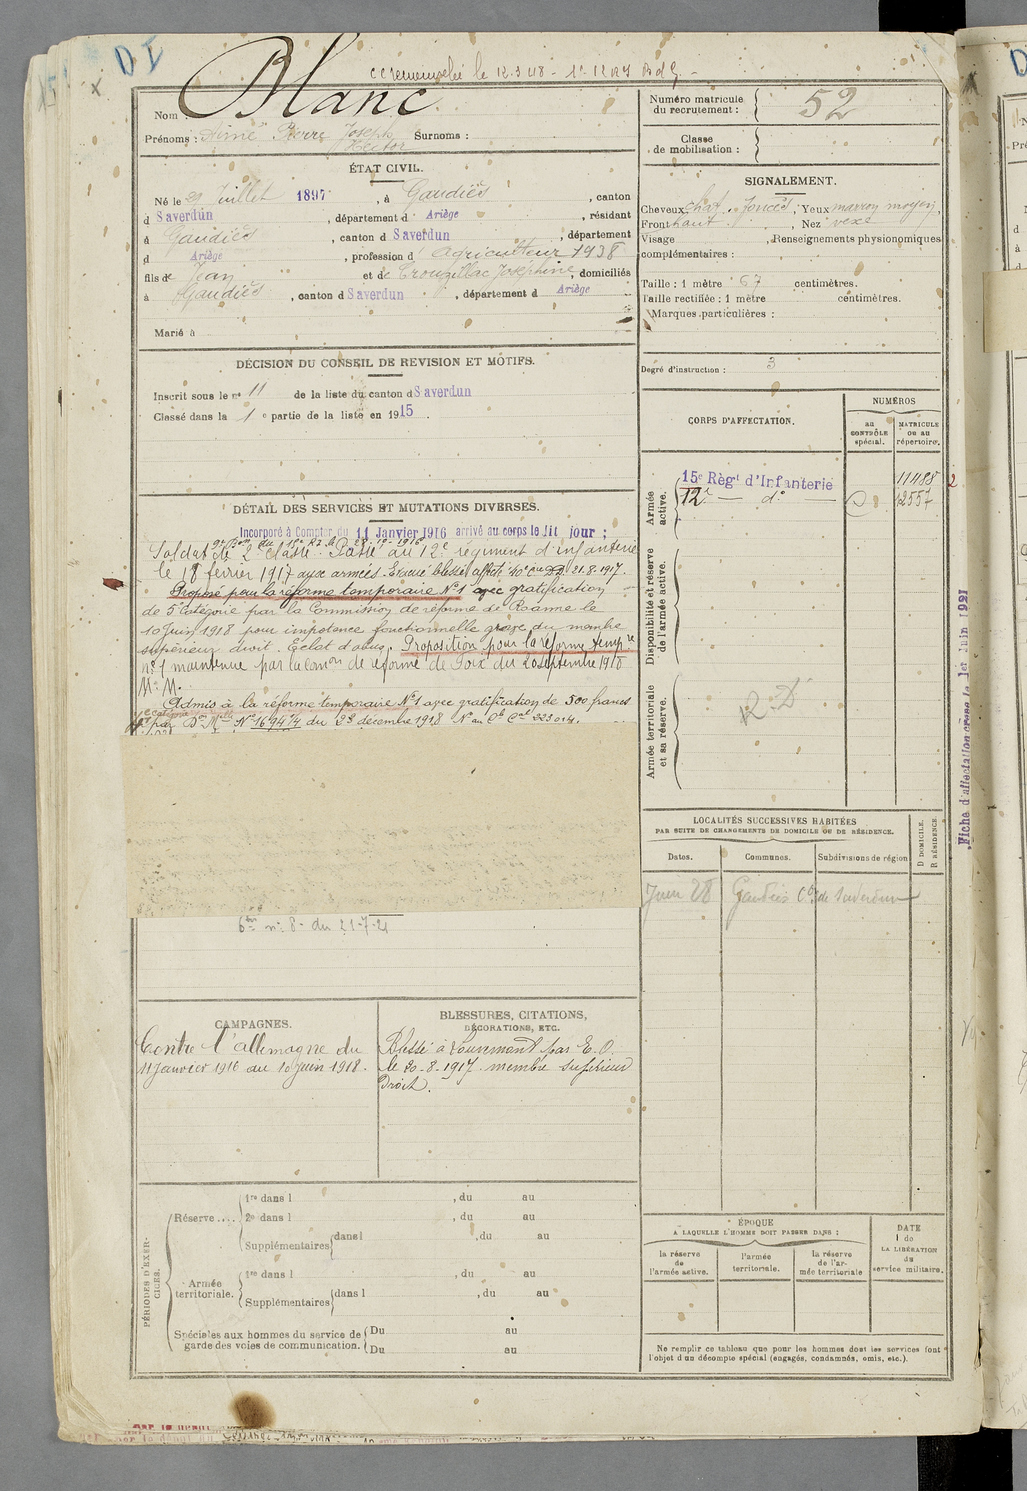 D I
le 12.3.48
Blanc
Nom :
Prénoms : Aimé Pierre Joseph Hector Surnoms :
ÉTAT CIVIL.
Né le Juillet 1897, à Gaudiès, canton
d Saverdun, département d Ariège, résidant
à Gaudiès, canton d Saverdun, département
d Ariège, profession d agriculteur 1938
fils de Jean et de Trouillac Joséphine, domiciliés
à Gaudiès, canton d Saverdun, département d Ariège
Marié à
DÉCISION DU CONSEIL DE REVISION ET MOTIFS.
Inscrit sous le n° 11 de la liste du canton d Saverdun
Classé dans la 1e partie de la liste en 1915.
DÉTAIL DES SERVICES ET MUTATIONS DIVERSES.
Incorporé à Compter du 11 Janvier 1916 arrivé au corps le dit jour ;
Soldat de 2e classe. Passé au 12e régiment d'infanterie
le 18 février 1917 aux armées. Evacué blessé 21.8.1917.
Proposé pour la réforme temporaire N°1 avec gratification
de 5e catégorie par la Commission de réforme de Roanne le
10 Juin 1918 pour impotence fonctionnelle grave du membre
supérieur droit. Eclat d'obus. Proposition pour la réforme tempre
n°1 maintenue par la Comon de réforme de Foix du 20 septembre 1918
M. M.
Admis à la réforme temporaire N°1 avec gratification de 500 francs
par Don Mlle N° 16947/4 du 23 décembre 1918
n° 8 du 21-7-21
CAMPAGNES.
Contre l'allemagne du
11 janvier 1916 au 10 juin 1918.
BLESSURES, CITATIONS,
DÉCORATIONS, ETC.
Blessé à Louvemont par E. O.
le 20-8-1917. membre supérieur
Droit.
PÉRIODES D'EXERCICES.
Réserve....
1re dans l , du au
2e dans l , du au
Supplémentaires dans l , du au
Armée territoriale.
1re dans l , du au
Supplémentaires dans l , du au
Spéciales aux hommes du service de garde des voies de communication.
Du au
Du au
Numéro matricule du recrutement : 52
Classe de mobilisation :
SIGNALEMENT.
Cheveux chat. foncés, Yeux marron moyen,
Front haut, Nez vexe
Visage , Renseignements physionomiques
complémentaires :
Taille : 1 mètre 67 centimètres.
Taille rectifiée : 1 mètre centimètres.
Marques particulières :
Degré d'instruction : 3
CORPS D'AFFECTATION.
NUMÉROS
au CONTRÔLE spécial.
MATRICULE ou au répertoire.
Armée active.
15e Régt d'Infanterie 11488
12e — do — 12557
Disponibilité et réserve de l'armée active.
Armée territoriale et sa réserve.
R.D
LOCALITÉS SUCCESSIVES HABITÉES
PAR SUITE DE CHANGEMENTS DE DOMICILE OU DE RÉSIDENCE.
Dates.
Communes.
Subdivisions de région
D DOMICILE.
R RÉSIDENCE.
Juin 28 Gaudiès de Saverdun
ÉPOQUE
A LAQUELLE L'HOMME DOIT PASSER DANS :
la réserve de l'armée active.
l'armée territoriale.
la réserve de l'armée territoriale
DATE de LA LIBÉRATION du service militaire.
Ne remplir ce tableau que pour les hommes dont les services font
l'objet d'un décompte spécial (engagés, condamnés, omis, etc.).
Fiche d'affectation créée le 1er Juin 1921